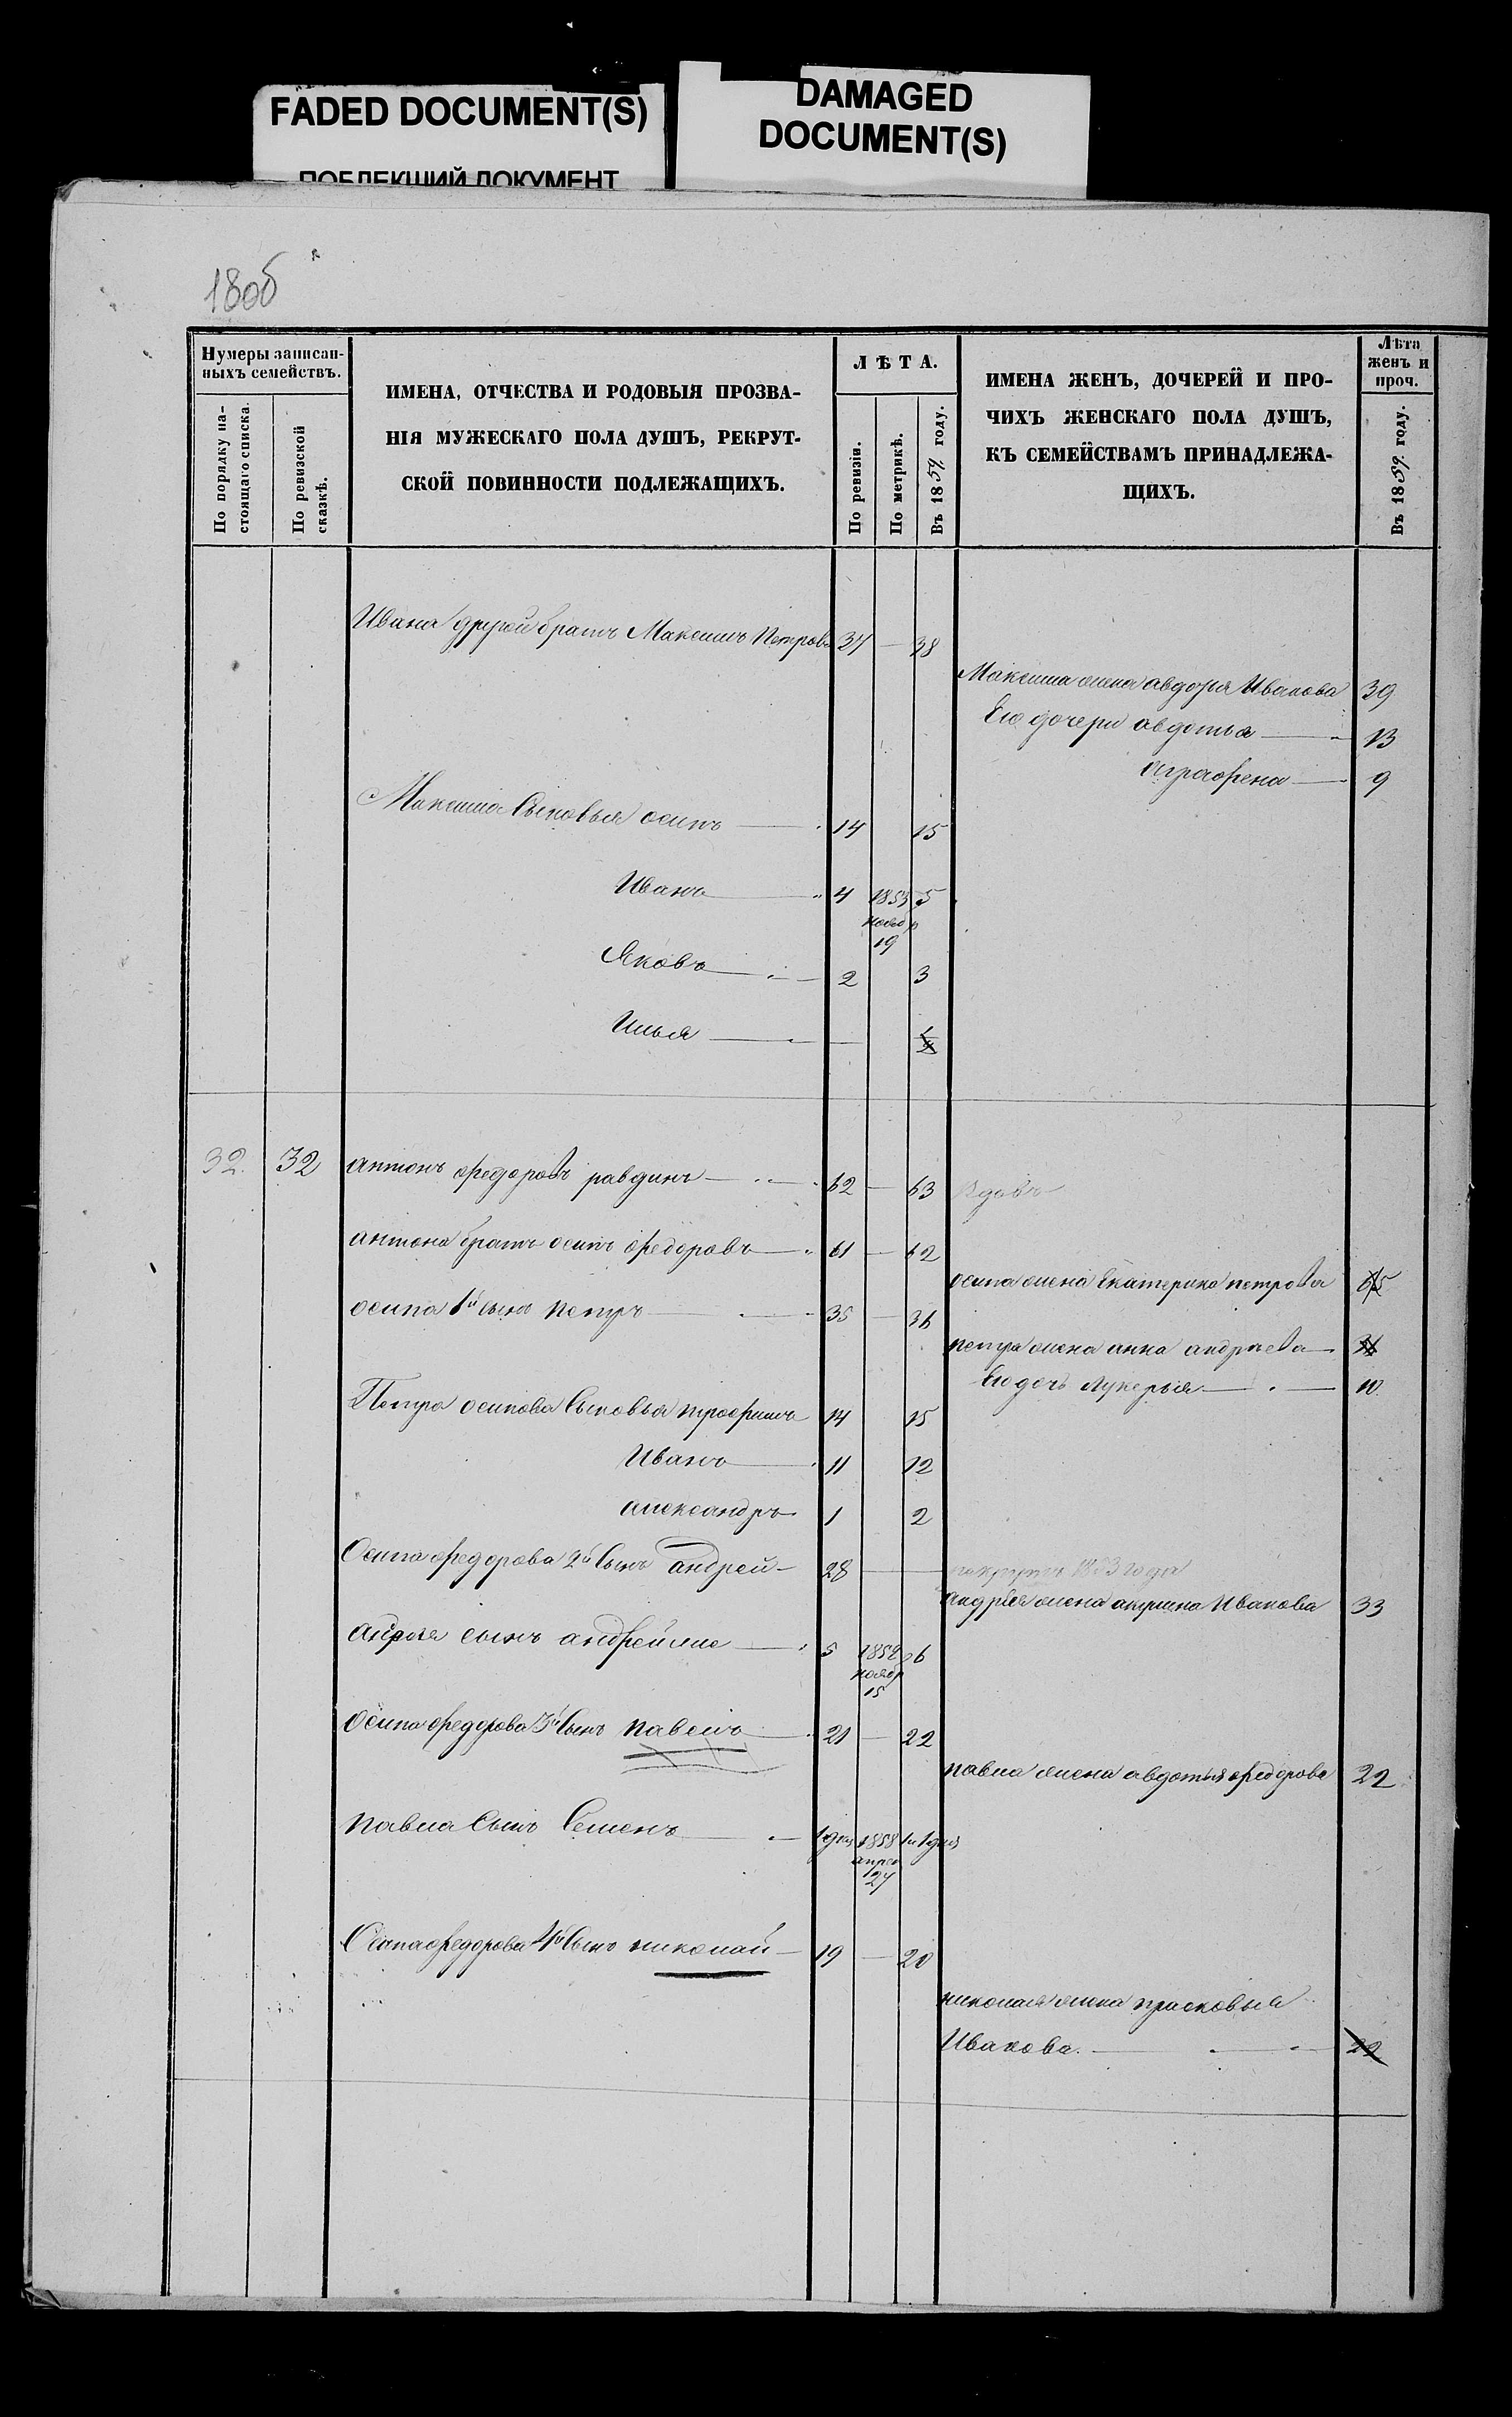 FADED DOCUMENT(S)
ПОБЛЕКШИЙ ДОКУМЕНТ
DAMAGED
DOCUMENT(S)
180об
Нумеры записан-
ныхъ семействъ.
По порядку на-
стоящаго списка.
По ревизской
сказкѣ.
ИМЕНА, ОТЧЕСТВА И РОДОВЫЯ ПРОЗВА-
НІЯ МУЖЕСКАГО ПОЛА ДУШЪ, РЕКРУТ-
СКОЙ ПОВИННОСТИ ПОДЛЕЖАЩИХЪ.
ЛѢТА.
По ревизіи.
По метрикѣ.
Въ 1859 году.
ИМЕНА ЖЕНЪ, ДОЧЕРЕЙ И ПРО-
ЧИХЪ ЖЕНСКАГО ПОЛА ДУШЪ,
КЪ СЕМЕЙСТВАМЪ ПРИНАДЛЕЖА-
ЩИХЪ.
Лѣта
женъ и
проч.
Въ 1859 году.
Ивана другой братъ Максимъ Петровъ 37 — 38
Максима жена авдотья Иванова 39
Его дочери авдотья — 13
аграфена — 9
Максима Сыновья осипъ — 14 15
Иванъ — 4 1853 5
ноябр
19
Яковъ — 2 3
Илья — —
32. 32 антонъ федоровъ равдинъ — 62 — 63 Вдовъ
антона братъ осипъ федоровъ — 61 — 62
осипа жена Екатерина петрова 65
осипа 1й сынъ петръ — 35 — 36
петра жена анна андреева —
Его дочь лукерья — 10
Петра осипова Сыновья трофимъ 14 15
Иванъ — 11 12
александръ 1 2
Осипа федорова 2й Сынъ андрей — 28 — рекрутъ 1853 года
андрея жена акулина Иванова 33
андрея сынъ андрей же — 5 1852 6
ноябр
15
осипа федорова 3й Сынъ павелъ — 21 — 22
павла жена авдотья федорова 22
павла Сынъ Семенъ — 1 дня 1858 1 и 1 дня
апрел
27
Осипа федорова 4й Сынъ николай — 19 — 20
николая жена прасковья
Иванова. — 22